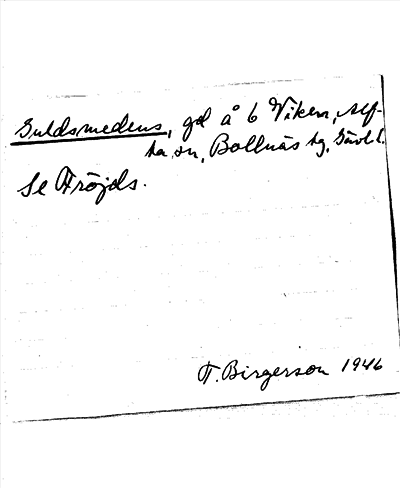 Guldsmedens, gd å 6 Viken, Alf-
ta sn, Bollnäs tg, Gävl. l.
Se Fröjds.
F. Birgerson 1946